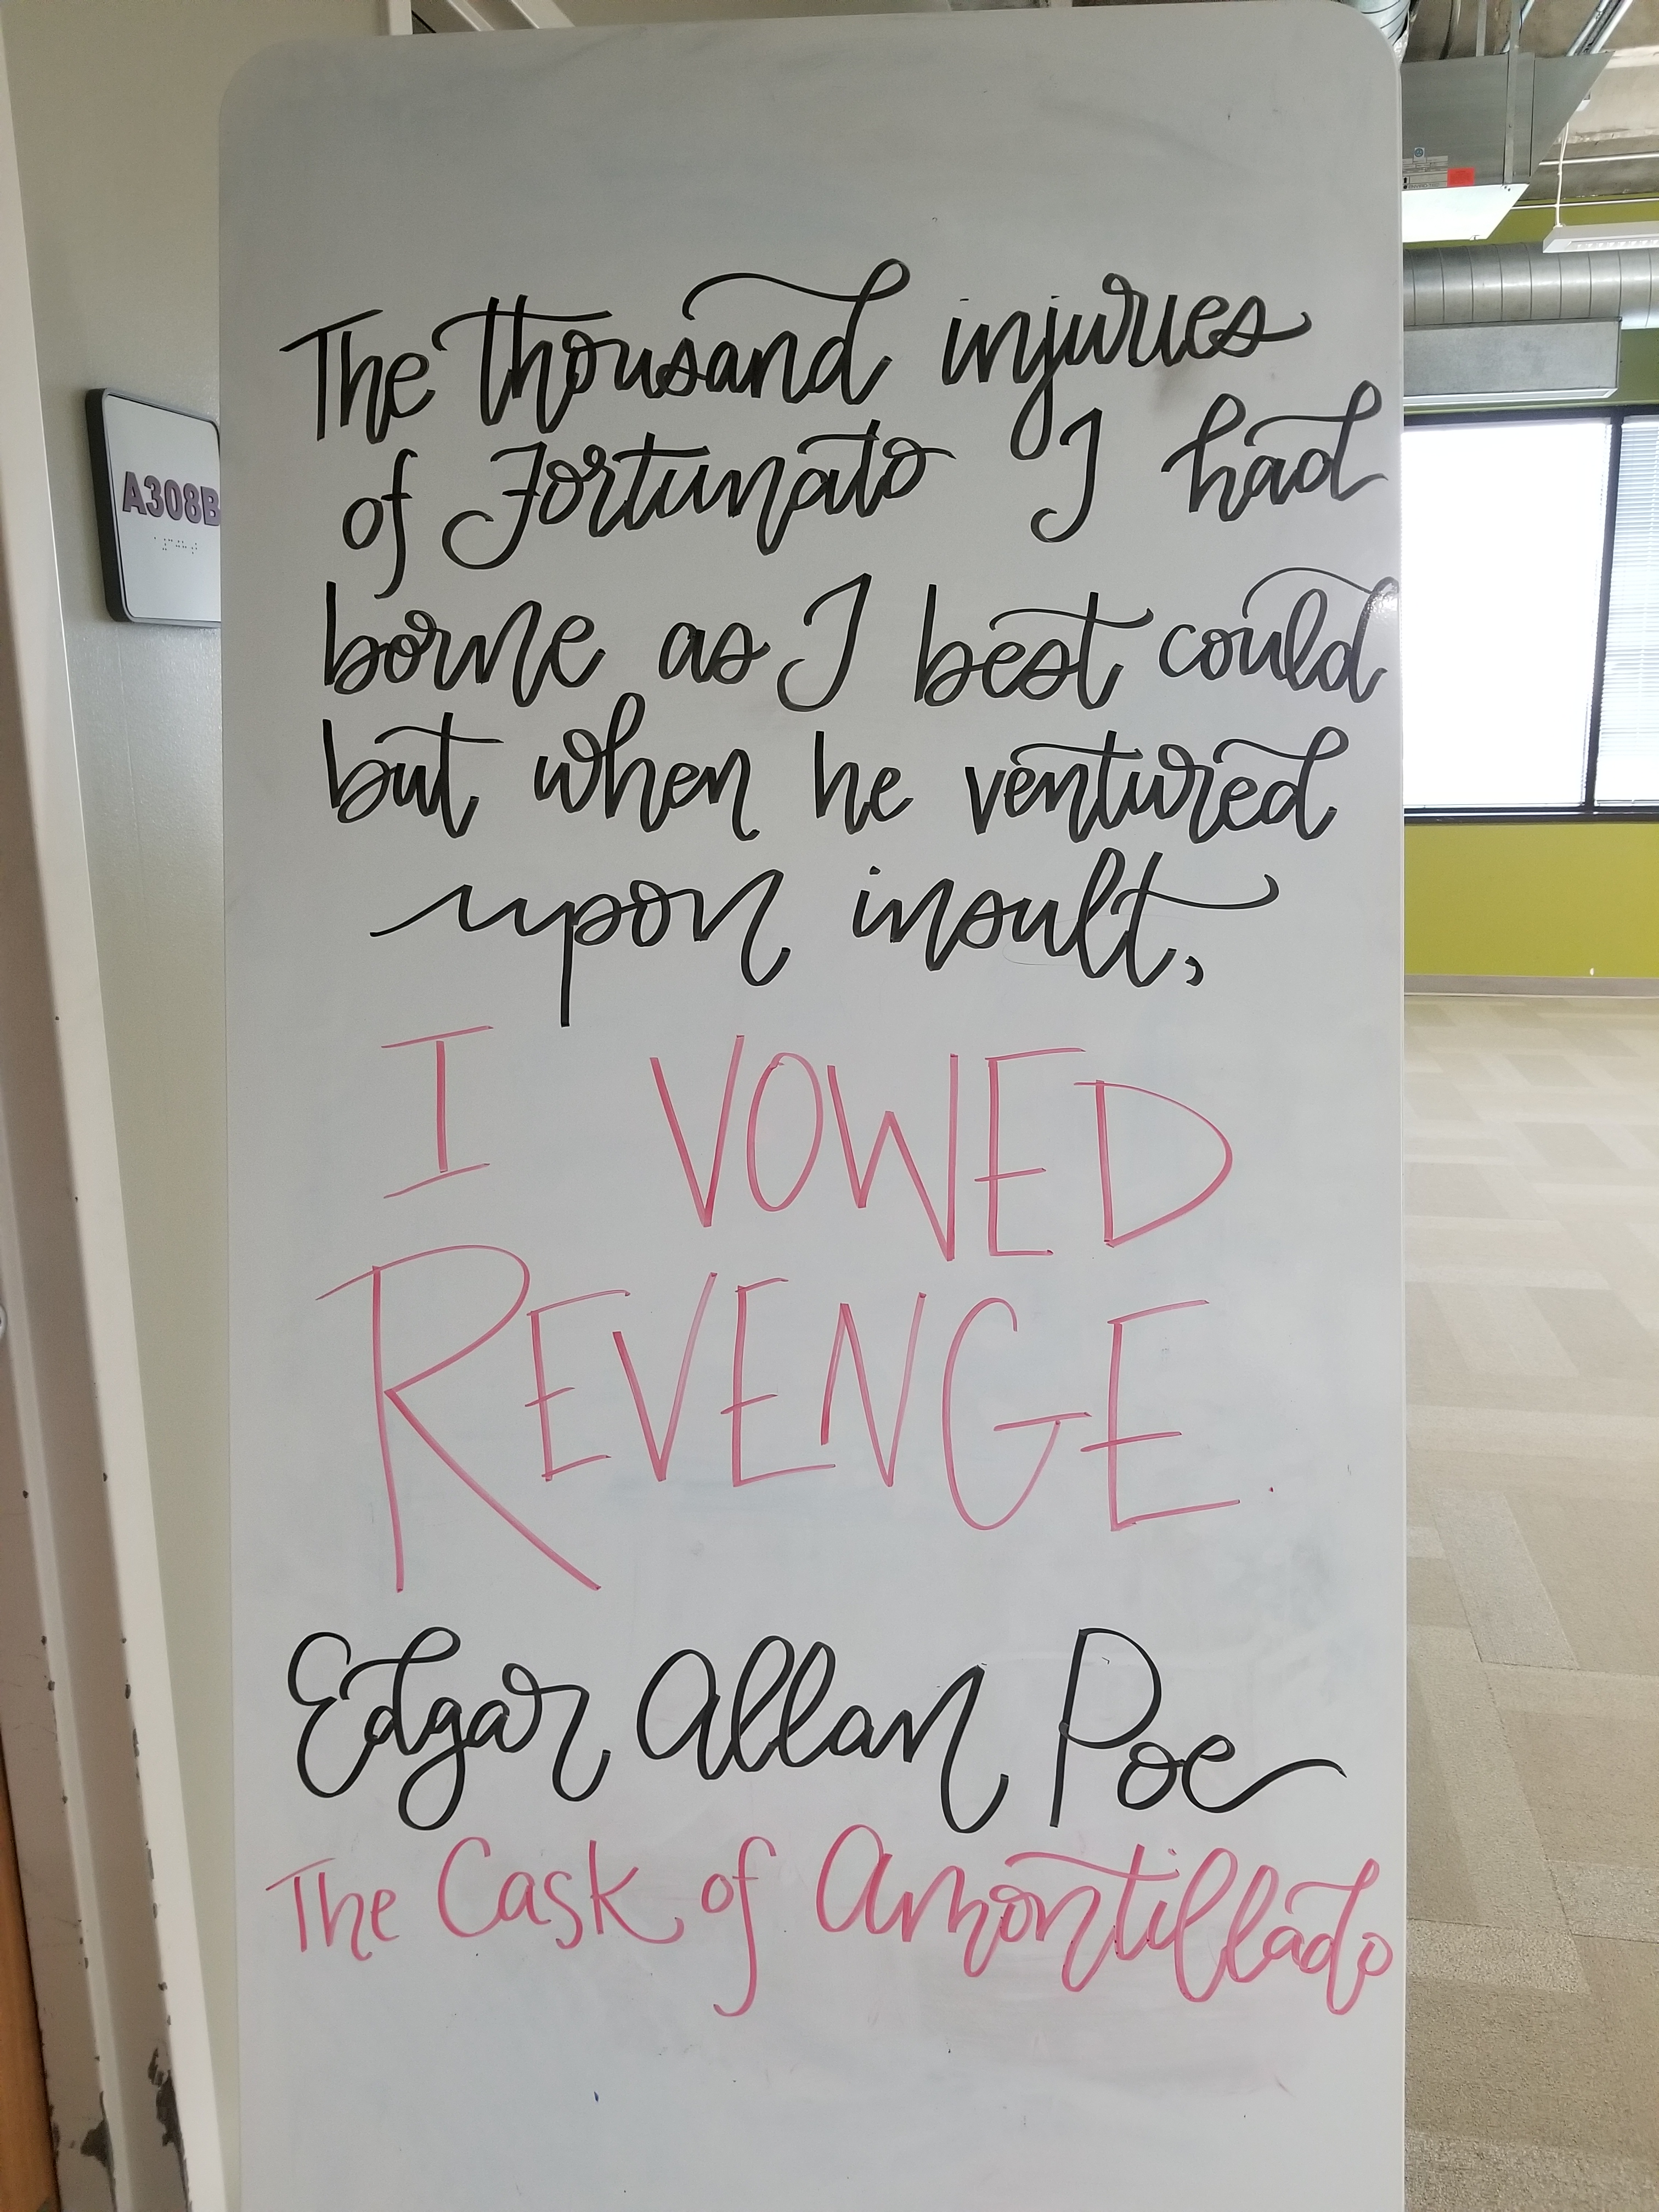 The thousand injuries
of Fortunato I had
borne as I best could
but when he ventured
upon insult,
I VOWED
REVENGE.
Edgar Allan Poe
The Cask of Amontillado
A308B